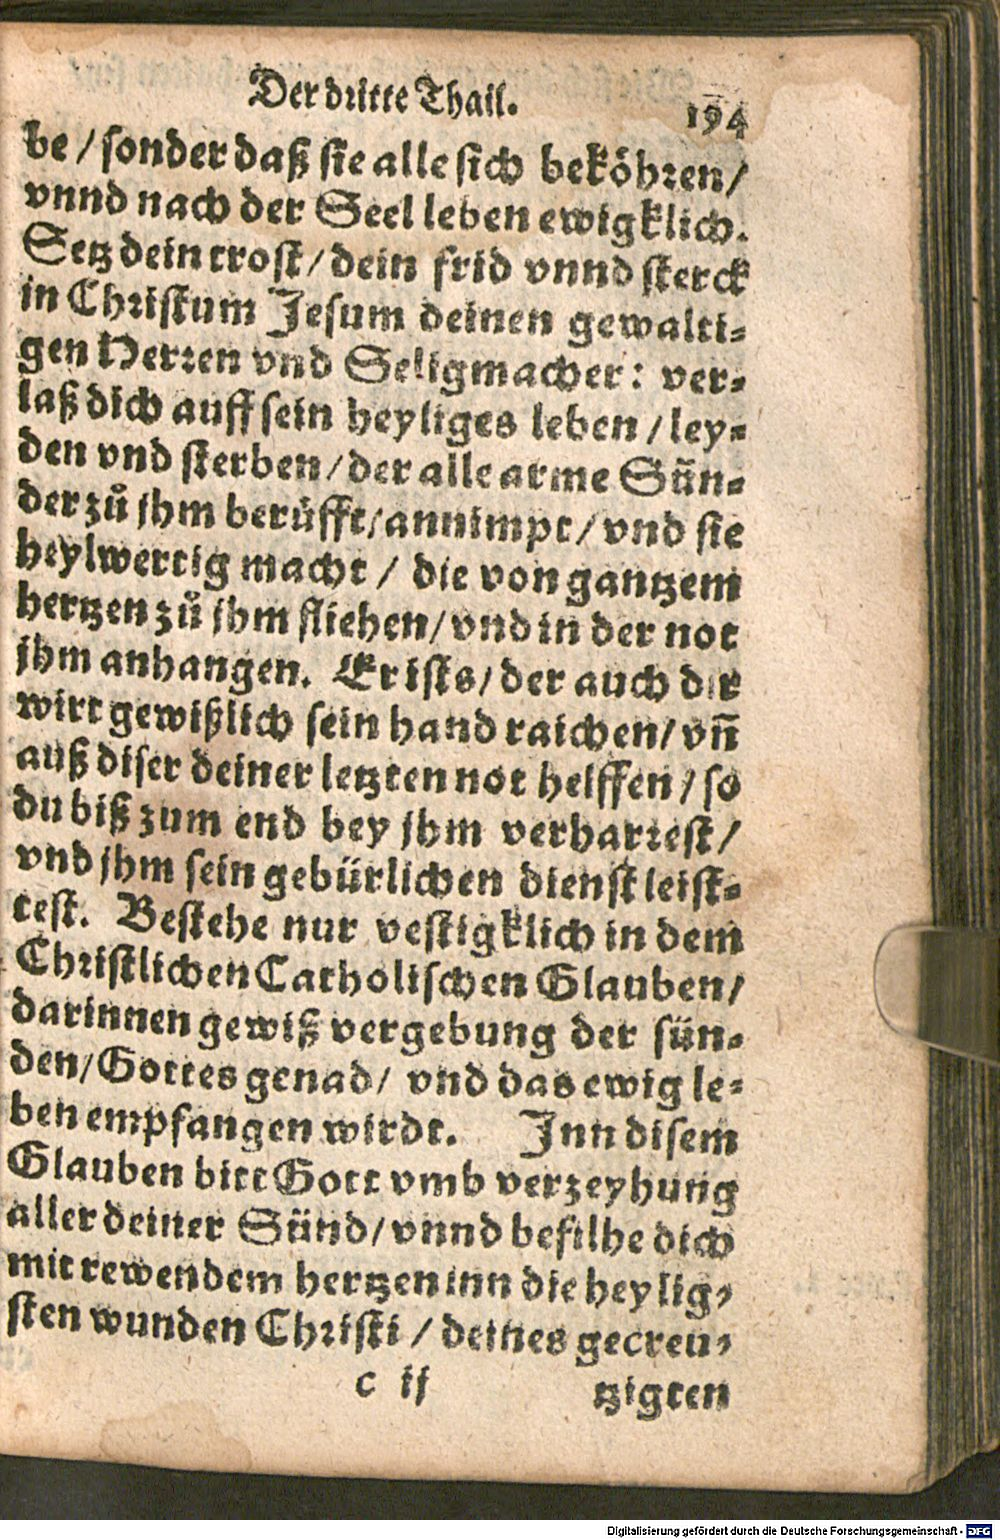 Der dritte Thail. 194
be / sonder daß sie alle sich beköhren /
vnnd nach der Seel leben ewigklich.
Setz dein trost / dein frid vnnd sterck
in Christum Jesum deinen gewalti-
gen Herren vnd Seligmacher: ver-
laß dich auff sein heyliges leben / ley-
den vnd sterben / der alle arme Sün-
der zů jhm berůfft / annimpt / vnd sie
heylwertig macht / die von gantzem
hertzen zů jhm fliehen / vnd in der not
jhm anhangen. Er ists / der auch dir
wirt gewißlich sein hand raichen / vñ
auß diser deiner letzten not helffen / so
du biß zum end bey jhm verharrest /
vnd jhm sein gebürlichen dienst leist-
test. Bestehe nur vestigklich in dem
Christlichen Catholischen Glauben /
darinnen gewiß vergebung der sün-
den / Gottes genad / vnd das ewig le-
ben empfangen wirdt. Inn disem
Glauben bitt Gott vmb verzeyhung
aller deiner Sünd / vnnd befilhe dich
mit rewendem hertzen inn die heylig-
sten wunden Christi / deines gecreu-
c ij tzigten
Digitalisierung gefördert durch die Deutsche Forschungsgemeinschaft - DFG